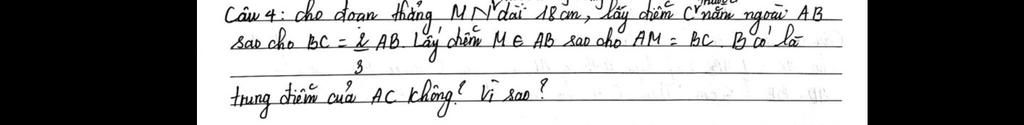 Câu 4: cho đoạn thẳng MN dài 18 cm, lấy điểm C nằm ngoài AB
sao cho BC = 2/3 AB. Lấy điểm M ∈ AB sao cho AM = BC. B có là
trung điểm của AC không? Vì sao?